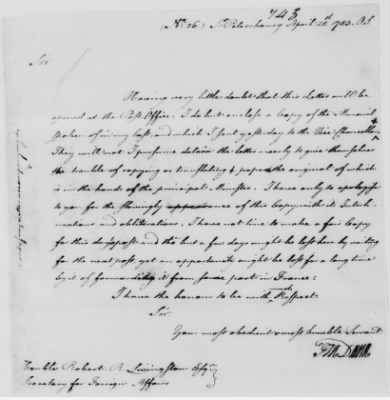 743
No. 26) St. Petersbourg April 22d. 1783. O.S.
Sir
Having very little doubt that this Letter will be
opened at the Post Office, I do but enclose a Copy of the Memorial
spoken of in my last, and which I sent yesterday to the Vice Chancellor.
They will not I presume detain the letter merely to give themselves
the trouble of copying or translating a paper the original of which
is in the hands of the principal Minister. I have only to apologise
to you for the slovingly appearance of this Copy with it Interli-
neations and obliterations. I have not time to make a fair Copy
for this days post and tho but a few days might be lost here by waiting
for the next post, yet an opportunity might be lost for a long time
by it of forwarding it from some port in France.
I have the honour to be with much Respect
Sir
Your most obedient & most humble Servant
FMDana
Honble Robert R. Livingston Esqr
Secretary for Foreign Affairs